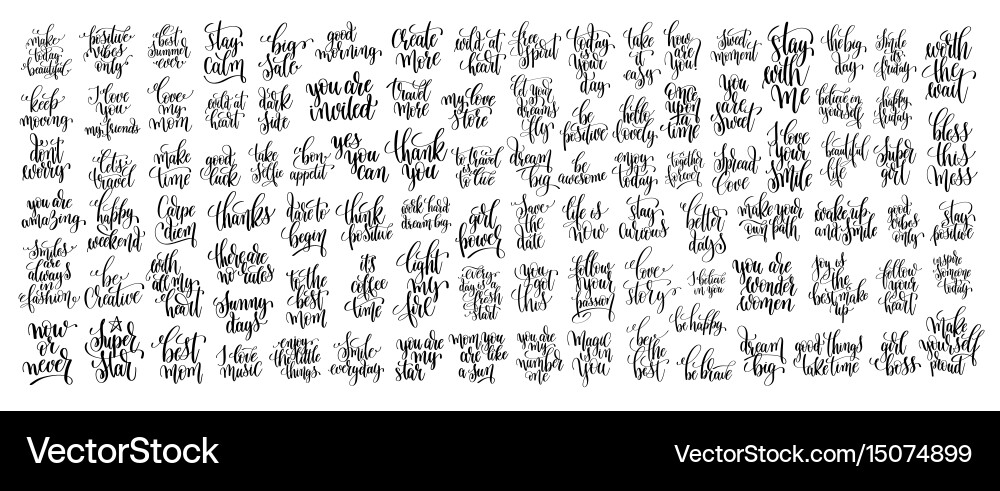 make
today
beautiful
positive
vibes
only
best
summer
ever
stay
calm
big
sale
good
morning
create
more
wild at
heart
free
spirit
today
your
day
take
it
easy
how
are
you?
sweet
moment
stay
with
me
the big
day
smile
it's
friday
worth
the
wait
keep
moving
I love
you
my friends
love
my
mom
wild at
heart
dark
side
you are
invited
travel
more
my love
store
let your
dreams
fly
be
positive
hello
lovely
once
upon
a
time
you
are
sweet
believe in
yourself
happy
friday
don't
worry
let's
travel
make
time
good
luck
take
selfie
bon
appetit
yes
you
can
thank
you
to travel
is
to live
dream
big
be
awesome
enjoy
today
together
forever
spread
love
I love
your
smile
beautiful
life
super
girl
bless
this
mess
you are
amazing
happy
weekend
carpe
diem
thanks
dare to
begin
think
positive
work hard
dream big
girl
power
save
the
date
life is
now
stay
curious
better
days
make your
own path
wake up
and smile
good
vibes
only
stay
positive
smiles
are
always
in
fashion
be
creative
with
all my
heart
there are
no rules
sunny
days
to the
best
mom
it's
coffee
time
light
my
fire
every
day is a
fresh
start
you
got
this
follow
your
passion
love
story
I believe
in you
you are
wonder
women
joy is
the
best make
up
follow
your
heart
inspire
someone
today
now
or
never
super
star
best
mom
I love
music
enjoy
the little
things
smile
everyday
you are
my
star
mom you
are like
a sun
you are
my
number
one
magic
is in
you
be
the
best
be happy
be brave
dream
big
good things
take time
girl
boss
make
yourself
proud
VectorStock
VectorStock.com/15074899